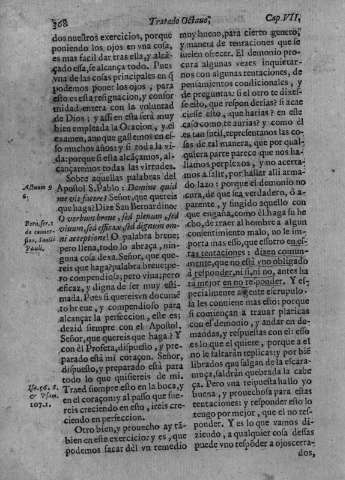 368 Tratado Octauo, Cap. VII.
dos nuestros exercicios, porque
poniendo los ojos en vna cosa,
es mas facil dar tras ella, y alcá-
çado essa, se alcança todo. Pues
vna de las cosas principales en q
podemos poner los ojos, para
esto es esta resignacion, y confor
midad entera con la voluntad
de Dios: y assi en esta será muy
bien empleada la Oracion, y el
examen, aunque gastemos en es-
so muchos años, y si toda la vi-
da: porque si esta alcáçamos, al-
cançaremos todas las virtudes.
Sobre aquellas palabras del
Apostol S. Pablo: Domine quid
me vis facere? Señor, que quereis
que haga? Dize San Bernardino:
O verbum breue, sed plenum, sed
viuum, sed efficax, sed dignum om-
ni acceptione! O palabra breue;
pero llena, todo lo abraça, nin-
guna cosa dexa. Señor, que que-
reis que haga? palabra breue; pe-
ro compendiosa, pero viua; pero
eficaz, y digna de ser muy esti-
mada. Pues si quereis vn docume̅
to breue, y compendioso para
alcançar la perfeccion, este es;
dezid siempre con el Apostol,
Señor, que quereis que haga? Y
con el Profeta, dispuesto, y pre-
parado está mi coraçon. Señor,
dispuesto, y preparado está para
todo lo que quisiereis de mi.
Traed siempre esto en la boca, y
en el coraçon: y al passo que fue-
reis creciendo en esto, ireis cre-
ciendo en perfeccion.
Otro bien, y prouecho ay tá-
bien en este exercicio: y es, que
podemos sacar del vn remedio
Actuum 9
6.
Isa. 56. 8.
107.1.
muy bueno, para cierto genero,
y manera de tentaciones que se
suelen ofrecer. El demonio pro-
cura algunas vezes inquietar-
nos con algunas tentaciones, de
pensamientos condicionales, y
de preguntas: si el otro te dixes-
se esto, que responderias? si acae
ciesse esto, que harias? en este
caso como te aurias? y como él
es tan sutil, representanos las co-
sas de tal manera, que por qual-
quiera parte parece que nos ha-
llamos perplexos, y no acerta-
mos a salir, por hallar alli arma-
do lazo: porque el demonio no
cura, de que sea verdadero, ó a-
parente, y fingido aquello con
que engaña, como él haga su he-
cho, de traer al hombre a algun
consentimiento malo, no le im-
porta mas esso, que essotro en es-
tas tentaciones: dizen comun-
mente, que no está vno obligado
a responder, ni si, ni no, antes ha-
rá mejor en no responder. Y es-
pecialmente a gente escrupulo-
sa les conuiene mas esso: porque
si comiençan a trauar platicas
con el demonio, y andar en de-
mandas, y respuestas con él: esso
es lo que el quiere, porque a el
no le faltarán replicas: y por bié
librados que salgan de la escara-
muça, saldrán quebrada la cabe
ça. Pero vna respuesta hallo yo
buena, y prouechosa para estas
tentaciones: y responder esso lo
tengo por mejor, que el no res-
ponder. Y es lo que vamos di-
ziendo, a qualquier cosa dessas
puede vno responder a ojos cerra-
dos,